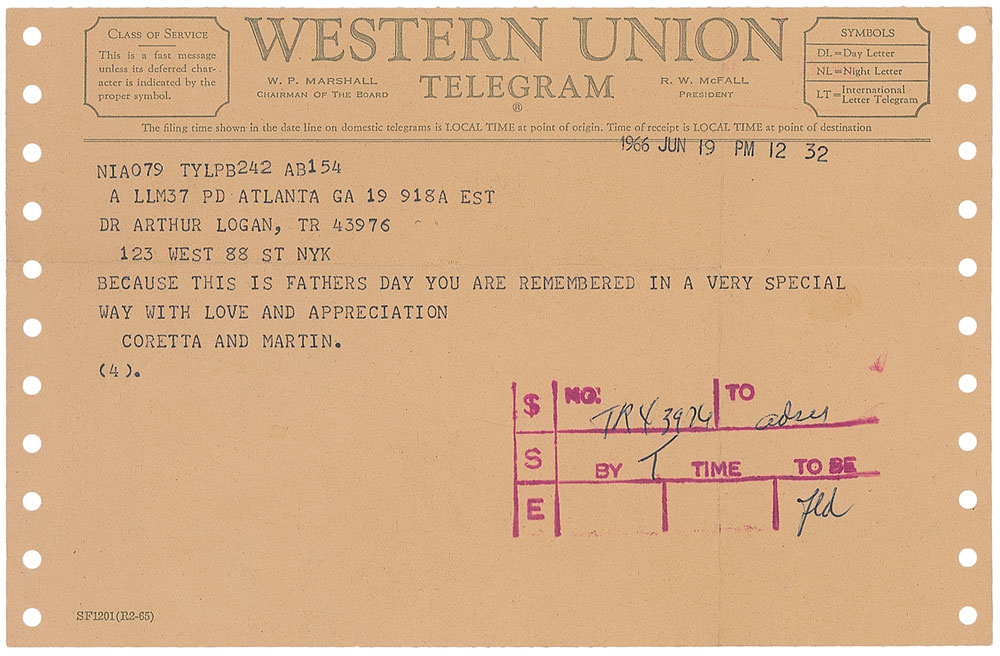 CLASS OF SERVICE
This is a fast message
unless its deferred char-
acter is indicated by the
proper symbol.
WESTERN UNION
TELEGRAM
®
W. P. MARSHALL
CHAIRMAN OF THE BOARD
R. W. McFALL
PRESIDENT
SYMBOLS
DL=Day Letter
NL=Night Letter
LT=International Letter Telegram
The filing time shown in the date line on domestic telegrams is LOCAL TIME at point of origin. Time of receipt is LOCAL TIME at point of destination
1966 JUN 19 PM 12 32
NIA079 TYLPB242 AB154
A LLM37 PD ATLANTA GA 19 918A EST
DR ARTHUR LOGAN, TR 43976
123 WEST 88 ST NYK
BECAUSE THIS IS FATHERS DAY YOU ARE REMEMBERED IN A VERY SPECIAL
WAY WITH LOVE AND APPRECIATION
CORETTA AND MARTIN.
(4).
$ NO: TR43976 TO
S BY T TIME TO BE
E fld
SF1201(R2-65)